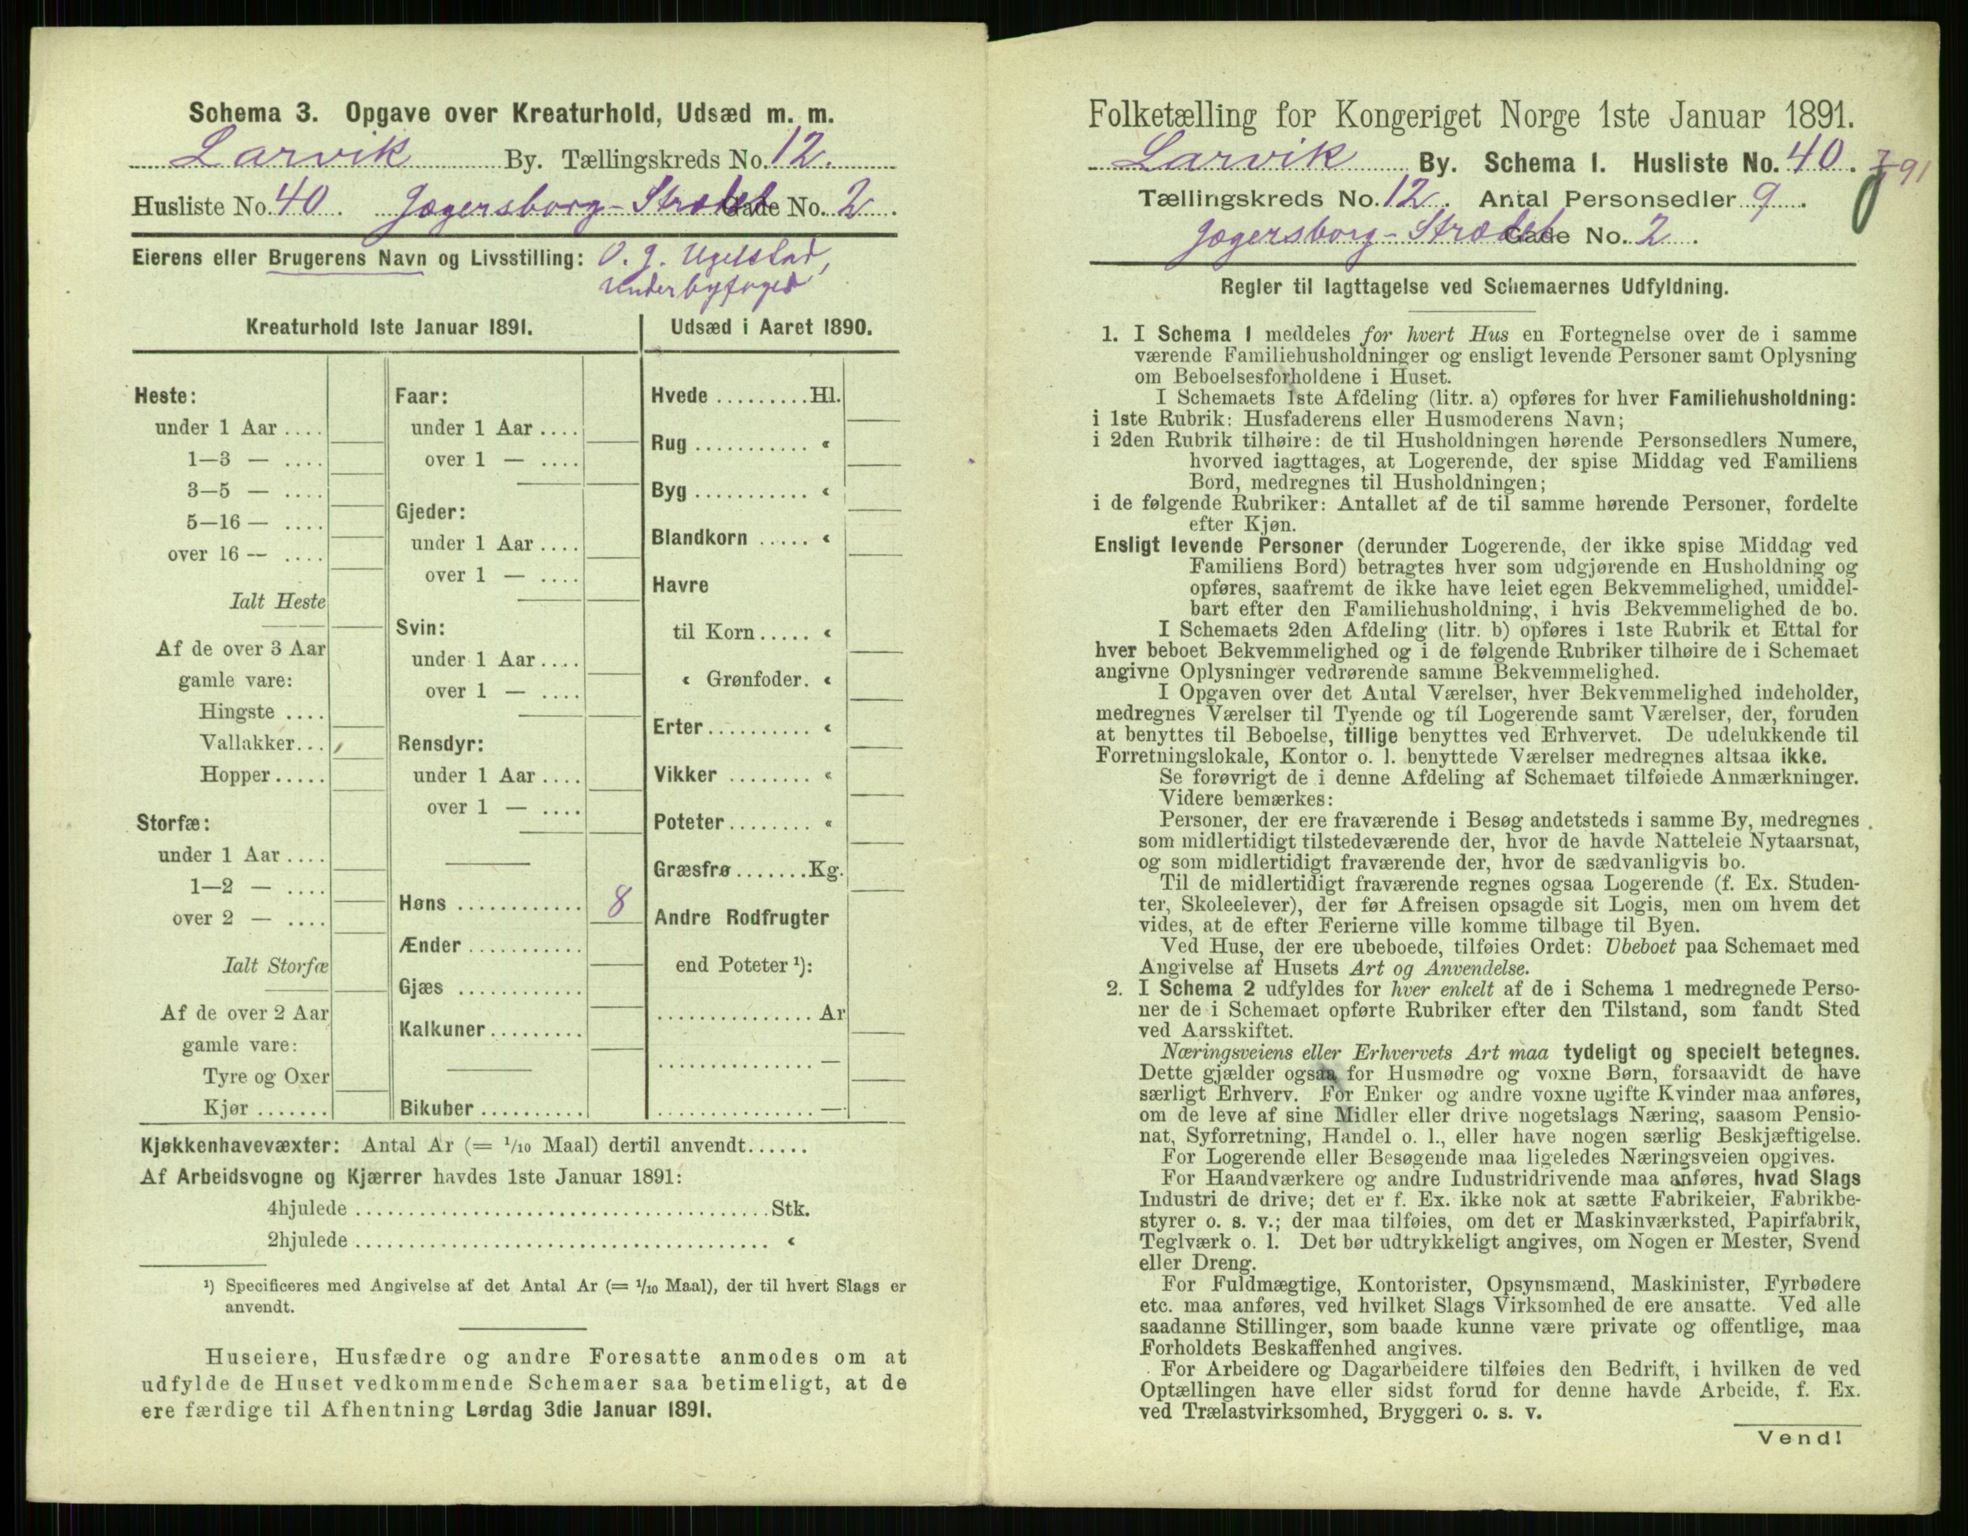 Schema 3. Opgave over Kreaturhold, Udsæd m. m.
Larvik By. Tællingskreds No. 12.
Husliste No. 40. Jægersborg-Strædet Gade No. 2.
Eierens eller Brugerens Navn og Livsstilling: O. J. Ugelstad,
underbyfoged
Kreaturhold 1ste Januar 1891.
Heste:
under 1 Aar ....
1—3 — ....
3—5 — ....
5—16 — ....
over 16 — ....
Ialt Heste
Af de over 3 Aar
gamle vare:
Hingste ....
Vallakker...
Hopper.....
Storfæ:
under 1 Aar ....
1—2 — ....
over 2 — ....
Ialt Storfæ
Af de over 2 Aar
gamle vare:
Tyre og Oxer
Kjør .......
Faar:
under 1 Aar ....
over 1 — ....
Gjeder:
under 1 Aar ....
over 1 — ....
Svin:
under 1 Aar ....
over 1 — ....
Rensdyr:
under 1 Aar ....
over 1 — ....
Høns ............ 8
Ænder ...........
Gjæs ............
Kalkuner.........
Bikuber ..........
Udsæd i Aaret 1890.
Hvede .........Hl.
Rug ........... «
Byg ........... «
Blandkorn ..... «
Havre
til Korn..... «
« Grønfoder. «
Erter .......... «
Vikker ........ «
Poteter........ «
Græsfrø .......Kg.
Andre Rodfrugter
end Poteter ¹):
............... Ar
............... —
............... —
Kjøkkenhavevæxter: Antal Ar (= 1/10 Maal) dertil anvendt......
Af Arbeidsvogne og Kjærrer havdes 1ste Januar 1891:
4hjulede .......................................Stk.
2hjulede ....................................... «
¹) Specificeres med Angivelse af det Antal Ar (= 1/10 Maal), der til hvert Slags er
anvendt.
Huseiere, Husfædre og andre Foresatte anmodes om at
udfylde de Huset vedkommende Schemaer saa betimeligt, at de
ere færdige til Afhentning Lørdag 3die Januar 1891.
Folketælling for Kongeriget Norge 1ste Januar 1891.
Larvik By. Schema 1. Husliste No. 40.
Tællingskreds No. 12. Antal Personsedler 9.
Jægersborg-Strædet Gade No. 2.
Regler til Iagttagelse ved Schemaernes Udfyldning.
1. I Schema 1 meddeles for hvert Hus en Fortegnelse over de i samme
værende Familiehusholdninger og ensligt levende Personer samt Oplysning
om Beboelsesforholdene i Huset.
I Schemaets 1ste Afdeling (litr. a) opføres for hver Familiehusholdning:
i 1ste Rubrik: Husfaderens eller Husmoderens Navn;
i 2den Rubrik tilhøire: de til Husholdningen hørende Personsedlers Numere,
hvorved iagttages, at Logerende, der spise Middag ved Familiens
Bord, medregnes til Husholdningen;
i de følgende Rubriker: Antallet af de til samme hørende Personer, fordelte
efter Kjøn.
Ensligt levende Personer (derunder Logerende, der ikke spise Middag ved
Familiens Bord) betragtes hver som udgjørende en Husholdning og
opføres, saafremt de ikke have leiet egen Bekvemmelighed, umiddel-
bart efter den Familiehusholdning, i hvis Bekvemmelighed de bo.
I Schemaets 2den Afdeling (litr. b) opføres i 1ste Rubrik et Ettal for
hver beboet Bekvemmelighed og i de følgende Rubriker tilhøire de i Schemaet
angivne Oplysninger vedrørende samme Bekvemmelighed.
I Opgaven over det Antal Værelser, hver Bekvemmelighed indeholder,
medregnes Værelser til Tyende og til Logerende samt Værelser, der, foruden
at benyttes til Beboelse, tillige benyttes ved Erhvervet. De udelukkende til
Forretningslokale, Kontor o. l. benyttede Værelser medregnes altsaa ikke.
Se forøvrigt de i denne Afdeling af Schemaet tilføiede Anmærkninger.
Videre bemærkes:
Personer, der ere fraværende i Besøg andetsteds i samme By, medregnes
som midlertidigt tilstedeværende der, hvor de havde Natteleie Nytaarsnat,
og som midlertidigt fraværende der, hvor de sædvanligvis bo.
Til de midlertidigt fraværende regnes ogsaa Logerende (f. Ex. Studen-
ter, Skoleelever), der før Afreisen opsagde sit Logis, men om hvem det
vides, at de efter Ferierne ville komme tilbage til Byen.
Ved Huse, der ere ubeboede, tilføies Ordet: Ubeboet paa Schemaet med
Angivelse af Husets Art og Anvendelse.
2. I Schema 2 udfyldes for hver enkelt af de i Schema 1 medregnede Perso-
ner de i Schemaet opførte Rubriker efter den Tilstand, som fandt Sted
ved Aarsskiftet.
Næringsveiens eller Erhvervets Art maa tydeligt og specielt betegnes.
Dette gjælder ogsaa for Husmødre og voxne Børn, forsaavidt de have
særligt Erhverv. For Enker og andre voxne ugifte Kvinder maa anføres,
om de leve af sine Midler eller drive nogetslags Næring, saasom Pensio-
nat, Syforretning, Handel o. l., eller have nogen særlig Beskjæftigelse.
For Logerende eller Besøgende maa ligeledes Næringsveien opgives.
For Haandværkere og andre Industridrivende maa anføres, hvad Slags
Industri de drive; det er f. Ex. ikke nok at sætte Fabrikeier, Fabrikbe-
styrer o. s. v.; der maa tilføies, om det er Maskinværksted, Papirfabrik,
Teglværk o. l. Det bør udtrykkeligt angives, om Nogen er Mester, Svend
eller Dreng.
For Fuldmægtige, Kontorister, Opsynsmænd, Maskinister, Fyrbødere
etc. maa anføres, ved hvilket Slags Virksomhed de ere ansatte. Ved alle
saadanne Stillinger, som baade kunne være private og offentlige, maa
Forholdets Beskaffenhed angives.
For Arbeidere og Dagarbeidere tilføies den Bedrift, i hvilken de ved
Optællingen have eller sidst forud for denne havde Arbeide, f. Ex.
ved Trælastvirksomhed, Bryggeri o. s. v.
Vend!